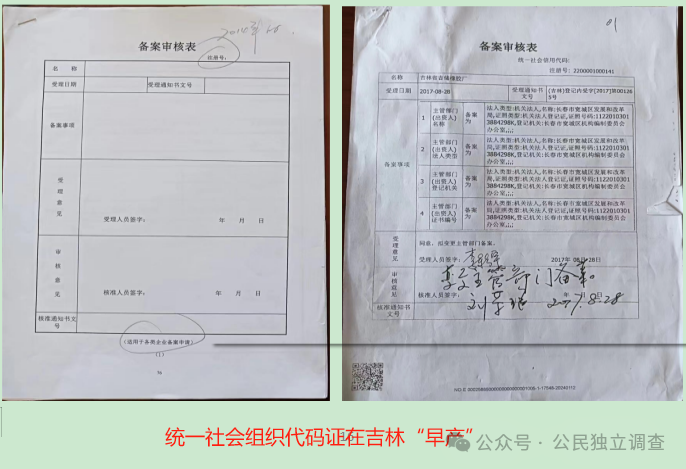 备案审核表
注册号：
名 称
受理日期
受理通知书文号
备案事项
受理意见
受理人员签字：
年 月 日
审核意见
核准人员签字：
年 月 日
核准通知书文号
（适用于各类企业备案申请）
备案审核表
统一社会信用代码：
注册号：2200001000141
名称
受理日期
2017-08-28
受理通知书文号
(吉林)登记内受字[2017]第001265号
备案事项
1
主管部门(出资人)名称
备案为
法人类型:机关法人,名称:长春市宽城区发展和改革局,证照类型:机关法人登记证,证照号码:11220103013884298K,登记机关:长春市宽城区机构编制委员会办公室,;;;
2
主管部门(出资人)法人类型
备案为
法人类型:机关法人,名称:长春市宽城区发展和改革局,证照类型:机关法人登记证,证照号码:11220103013884298K,登记机关:长春市宽城区机构编制委员会办公室,;;;
3
主管部门(出资人)登记机关
备案为
法人类型:机关法人,名称:长春市宽城区发展和改革局,证照类型:机关法人登记证,证照号码:11220103013884298K,登记机关:长春市宽城区机构编制委员会办公室,;;;
4
主管部门(出资人)证书编号
备案为
法人类型:机关法人,名称:长春市宽城区发展和改革局,证照类型:机关法人登记证,证照号码:11220103013884298K,登记机关:长春市宽城区机构编制委员会办公室,;;;
受理意见
同意，拟变更主管部门备案。
受理人员签字：
2017年 08月28日
审核意见
主管部门备案。
核准人员签字：
2017.8.28
核准通知书文号
统一社会组织代码证在吉林“早产”
公众号 · 公民独立调查